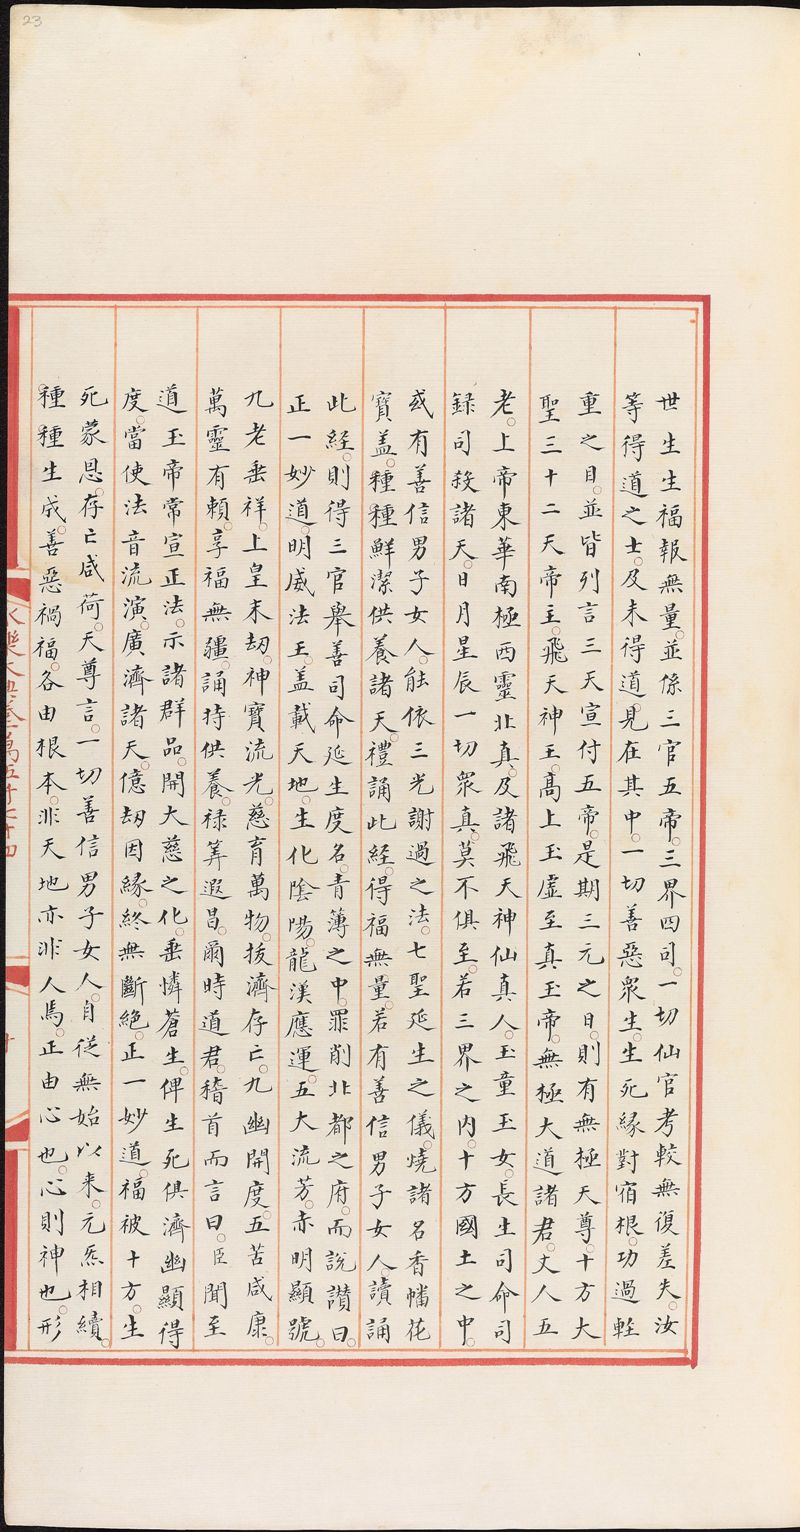 23
世生生福報無量。並係三官五帝。三界四司。一切仙官考較無復差失。汝
等得道之士。及未得道。見在其中。一切善惡衆生。生死緣對宿根。功過輕
重之目。並皆列言三天宣付五帝。是期三元之日。則有無極天尊。十方大
聖三十二天帝主。飛天神王。髙上玉虛至真玉帝。無極大道諸君。丈人五
老。上帝東華南極西靈北真。及諸飛天神仙真人。玉童玉女。長生司命司
録司殺諸天。日月星辰一切衆真。莫不俱至。若三界之内。十方國土之中。
或有善信男子女人。能依三光謝過之法。七聖延生之儀。燒諸名香幡花
寶盖。種種鮮潔供養諸天。禮誦此經。得福無量。若有善信男子女人讀誦
此經。則得三官舉善司命延生度名。青薄之中。罪削北都之府。而說讃曰。
正一妙道。明威法王。盖載天地。生化陰陽。龍漢應運。五大流芳。赤明顯號。
九老垂祥。上皇末刼。神寶流光。慈育萬物。拔濟存亡。九幽開度。五苦咸康。
萬靈有頼。享福無疆。誦持供養。禄筭遐昌。爾時道君。稽首而言曰。臣聞至
道玉帝常宣正法。示諸群品。開大慈之化。垂憐蒼生。俾生死俱濟幽顯得
度。當使法音流演。廣濟諸天。億刼因緣。終無斷絶。正一妙道。福被十方。生
死蒙恩。存亡咸荷。天尊言。一切善信男子女人。自從無始以来。元炁相續。
種種生成。善惡禍福。各由根本。非天地亦非人焉。正由心也。心則神也。形
永樂大典卷一萬五千七十四
十